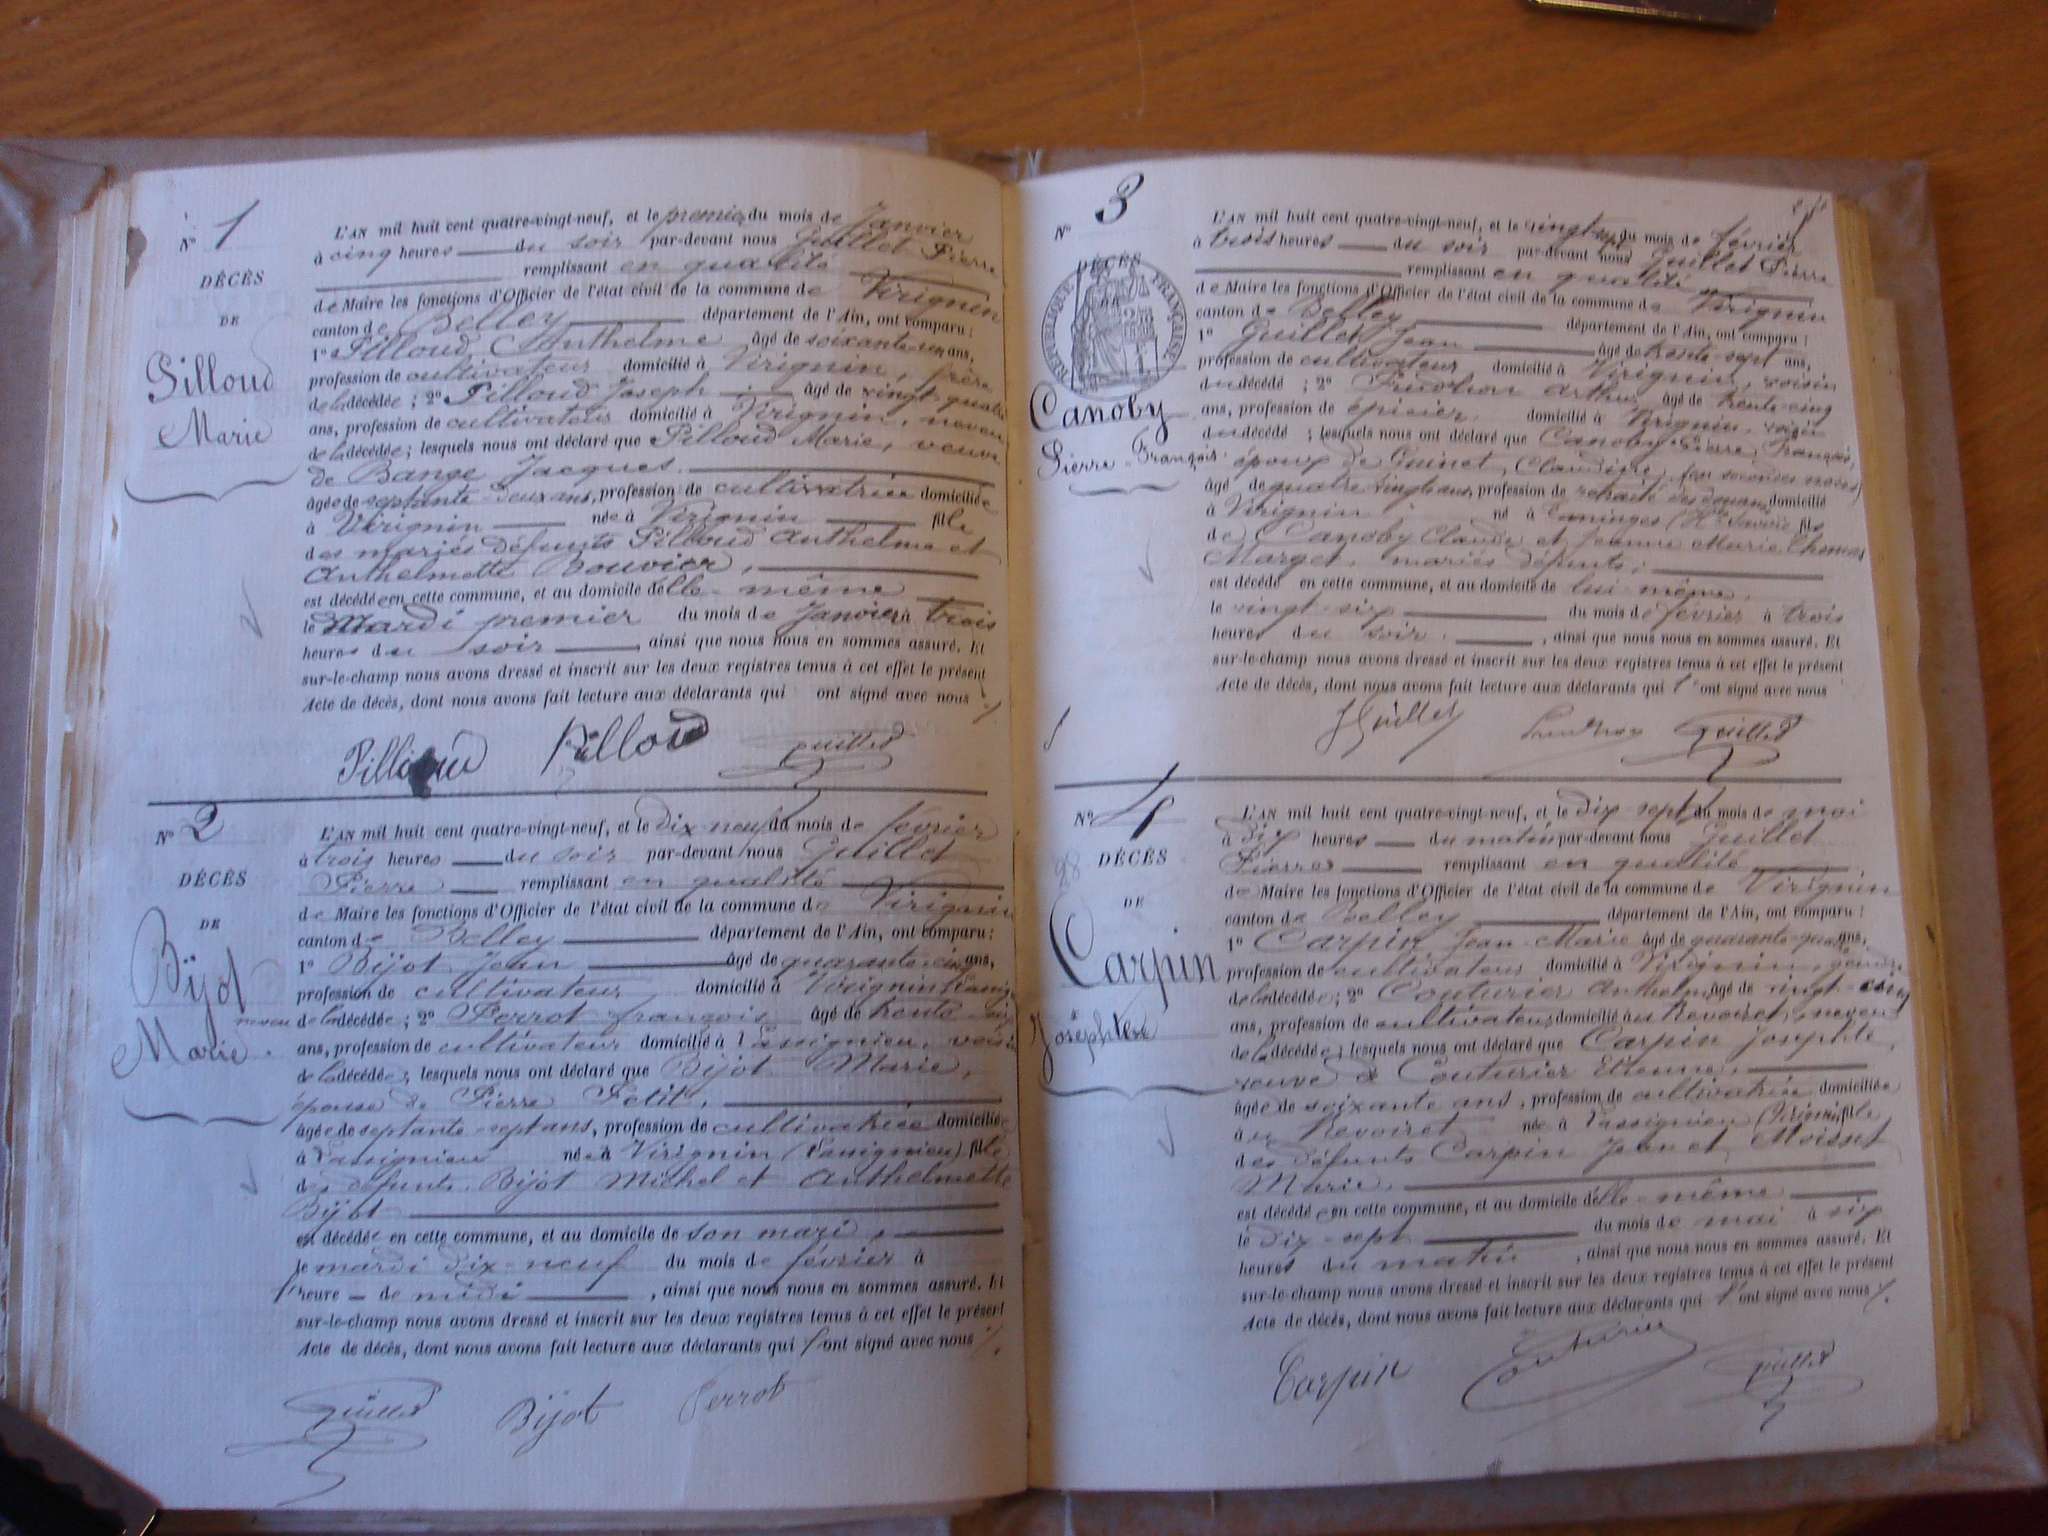 N° 1
DÉCÈS
DE
Pilloud
Marie
L'AN mil huit cent quatre-vingt-neuf, et le premier du mois de Janvier
à cinq heures du soir par-devant nous Guillet Pierre
remplissant en qualité
de Maire les fonctions d'Officier de l'état civil de la commune de Virignin
canton de Belley département de l'Ain, ont comparu :
1° Pilloud Anthelme âgé de soixante-six ans,
profession de cultivateur domicilié à Virignin, frère
de la décédée ; 2° Pilloud Joseph âgé de vingt-quatre
ans, profession de cultivateur domicilié à Virignin, neveu
de la décédée ; lesquels nous ont déclaré que Pilloud Marie, veuve
de Bange Jacques
âgée de septante-deux ans, profession de cultivatrice domiciliée
à Virignin née à Virignin fille
des mariés défunts Pilloud Anthelme et
Anthelmette Bouvier,
est décédée en cette commune, et au domicile d'elle-même
le Mardi premier du mois de Janvier à trois
heures du soir, ainsi que nous nous en sommes assuré. Et
sur-le-champ nous avons dressé et inscrit sur les deux registres tenus à cet effet le présent
Acte de décès, dont nous avons fait lecture aux déclarants qui ont signé avec nous
Pilloud Pilloud Guillet
N° 2
DÉCÈS
DE
Bijot
Marie
L'AN mil huit cent quatre-vingt-neuf, et le dix-neuf du mois de février
à trois heures du soir par-devant nous Guillet
Pierre remplissant en qualité
de Maire les fonctions d'Officier de l'état civil de la commune de Virignin
canton de Belley département de l'Ain, ont comparu :
1° Bijot Jean âgé de quarante-cinq ans,
profession de cultivateur domicilié à Virignin
neveu de la décédée ; 2° Perrot françois âgé de trente
ans, profession de cultivateur domicilié à Passignieu, voisin
de la décédée, lesquels nous ont déclaré que Bijot Marie,
épouse de Pierre Petit,
âgée de septante-sept ans, profession de cultivatrice domiciliée
à Passignieu née à Virignin (Passignieu) fille
des défunts Bijot Michel et Anthelmette
Bijot
est décédée en cette commune, et au domicile de son mari,
le mardi dix-neuf du mois de février à
l'heure de midi, ainsi que nous nous en sommes assuré. Et
sur-le-champ nous avons dressé et inscrit sur les deux registres tenus à cet effet le présent
Acte de décès, dont nous avons fait lecture aux déclarants qui l'ont signé avec nous
Guillet Bijot Perrot
N° 3
DÉCÈS
RÉPUBLIQUE FRANÇAISE
Canoby
Pierre-François
L'AN mil huit cent quatre-vingt-neuf, et le vingt-sept du mois de février
à trois heures du soir par-devant nous Guillet Pierre
remplissant en qualité
de Maire les fonctions d'Officier de l'état civil de la commune de Virignin
canton de Belley département de l'Ain, ont comparu :
1° Guillet Jean âgé de trente-sept ans,
profession de cultivateur domicilié à Virignin, voisin
du décédé ; 2° Arthur âgé de trente-cinq
ans, profession de épicier domicilié à Virignin, voisin
du décédé ; lesquels nous ont déclaré que Canoby Pierre François,
époux de Guinet, Claudine, (en secondes noces)
âgé de quatre vingts ans, profession de retraité des douanes domicilié
à Virignin né à Taninges (Hte Savoie) fils
de Canoby Claude et Jeanne Marie Thomas
Marget, mariés défunts ;
est décédé en cette commune, et au domicile de lui-même
le vingt-six du mois de février à trois
heures du soir, ainsi que nous nous en sommes assuré. Et
sur-le-champ nous avons dressé et inscrit sur les deux registres tenus à cet effet le présent
Acte de décès, dont nous avons fait lecture aux déclarants qui l'ont signé avec nous
J Guillet Guillet
N° 4
28
DÉCÈS
DE
Carpin
Josephte
L'AN mil huit cent quatre-vingt-neuf, et le dix-sept du mois de mai
à dix heures du matin par-devant nous Guillet
Pierre remplissant en qualité
de Maire les fonctions d'Officier de l'état civil de la commune de Virignin
canton de Belley département de l'Ain, ont comparu :
1° Carpin Jean-Marie âgé de quarante-quatre ans,
profession de cultivateur domicilié à Virignin, gendre
de la décédée ; 2° Couturier Anthelme âgé de vingt-cinq
ans, profession de cultivateur domicilié au Revoiret, neveu
de la décédée ; lesquels nous ont déclaré que Carpin Josephte,
veuve de Couturier Etienne,
âgée de soixante ans, profession de cultivatrice domiciliée
à au Revoiret née à Passignieu (Virignin) fille
des défunts Carpin Jean et Moisset
Marie,
est décédée en cette commune, et au domicile d'elle-même
le dix-sept du mois de mai à six
heures du matin, ainsi que nous nous en sommes assuré. Et
sur-le-champ nous avons dressé et inscrit sur les deux registres tenus à cet effet le présent
Acte de décès, dont nous avons fait lecture aux déclarants qui l'ont signé avec nous
Carpin Couturier Guillet